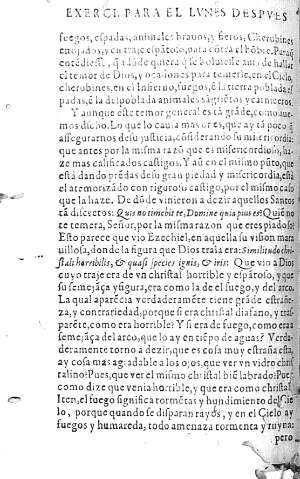 EXERCI. PARA EL LVNES DESPVES
fuegos, espadas, animales brauos, y fieros, Cherubines
enojados, y en traje espãtoso, para cõtra el hõbre. Paraq̃
entẽdiesse, q̃ adõde quiera q̃ se boluiesse auia de hallar
el temor de Dios, y ocasiones para temerle, en el Cielo,
cherubines, en el Infierno, fuegos, ẽ la tierra poblada, es
padas, ẽ la despoblada animales sãgriẽtos y carniceros.
Y aunque este temor general es tã grãde, como aue-
mos dicho. Lo que lo causa mayor es, que ay tã poco q̃
assegurarnos de su justicia, cõsiderando su misericordia:
que antes por la misma razõ que es misericordioso, ha-
ze mas calificados castigos. Y aũ en el mismo pũto, que
està dando prẽdas de su gran piedad y misericordia, està
el atemorizãdo con riguroso castigo, por el mismo caso
que la haze. De dõde vinieron a dezir aquellos Santos
tã discretos: Quis non timebit te, Domine quia pius es? Quiẽ no
te temera, Señor, por la misma razon que eres piadoso?
Esto parece que vio Ezechiel, en aquella su visiõ mara
uillosa, donde la figura que Dios traìa era: Similitudo chri-
stali horribilis, & quasi species ignis, & iris: Que vio a Dios
cuyo traje era de vn christal horrible y espãtoso, y que
su semejãça y figura, era como la de el fuego, y del arco.
La qual aparecia verdaderamẽte tiene grãde estrañe-
za, y contrariedad, porque si era christal diafano, y tras-
parẽte, como era horrible? Y si era de fuego, como era a
semejãça del arco, que lo ay en tiẽpo de aguas? Verda-
deramente torno a dezir, que es cosa muy estraña esta,
ay cosa mas agradable a los ojos, que ver vn vidro chris
talino? Pues, que ver el mismo christal biẽ labrado? Pues,
como dize que venia horrible, y que era como christal?
Iten, el fuego significa tormẽtas y hundimiento del Cie-
lo, porque quando se disparan rayos, y en el Cielo ay
fuegos y humareda, todo amenaza tormenta y ruyna:
pero